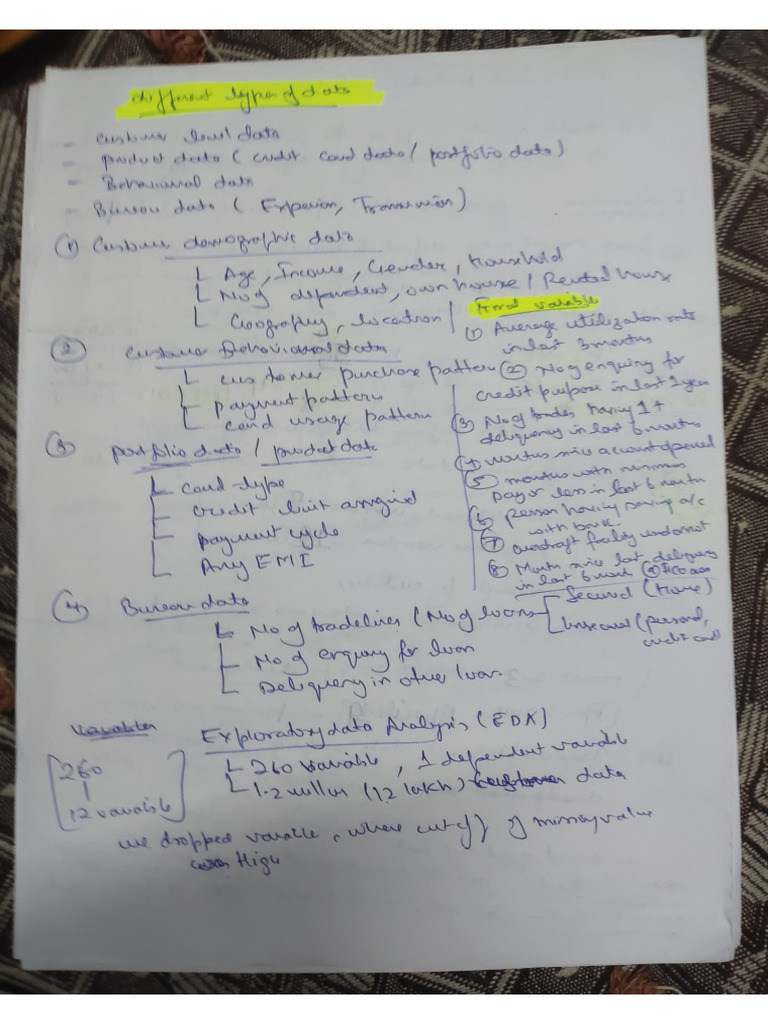 different type of data
- customer level data
- product data ( credit card data / portfolio data )
- Behavioural data
- Bureau data ( Experian, Transunion )
① Customer demographic data
Age, Income, Gender, Household
No of dependent, own house / Rented house
Geography, location
② Customer Behavioural data
customer purchase pattern
payment pattern
card usage pattern
③ portfolio data / product data
Card type
credit limit assigned
payment cycle
Any EMI
④ Bureau data
No of tradelines ( No of loans
No of enquiry for loan
Deliquency in other loan.
Secured ( Home )
Unsecured ( personal, credit card
Final variable
① Average utilization rate
in last 3 months
② No of enquiry for
credit purpose in last 1 year
③ No of trades having 1+
deliquency in last 6 months
④ months since account opened
⑤ months with minimum
pay or less in last 6 month
⑥ person having saving a/c
with bank.
⑦ overdraft facility used or not
⑧ Month since last deliquency
in last 6 month ⑨
variables
260
12 variable
Exploratory data Analysis ( EDA )
260 variable, 1 dependent variable
1.2 million ( 12 lakh ) data
we dropped variable, where cutoff of missing value
High